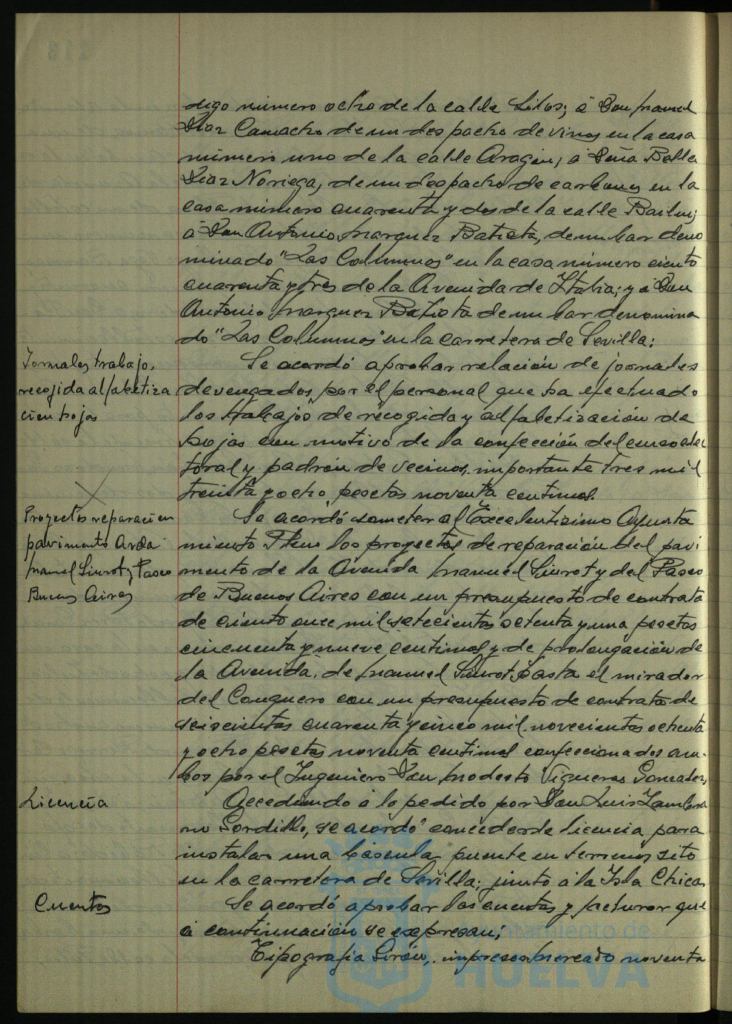 digo número ocho de la calle Silos; á Don Manuel
Diaz Camacho de un despacho de vinos en la casa
número uno de la calle Aragón, á Doña Bella
Diaz Noriega, de un despacho de carbones en la
casa número cuarenta y dos de la calle Bailen;
á Don Antonio Marquez Batista, de un bar deno
minado "Las Columnas" en la casa número ciento
cuarenta y tres de la Avenida de Italia; y á Don
Antonio Marquez Batista de un bar denomina
do "Las Columnas" en la carretera de Sevilla.
Jornales trabajo,
recogida alfabetiza
cion hojas
Se acordó aprobar relación de jornales
devengados por el personal que ha efectuado
los trabajos de recogida y alfabetización de
hojas con motivo de la confección del censo elec
toral y padrón de vecinos, importante tres mil
treinta y ocho pesetas noventa centimos.
Proyectos reparacion
pavimento Avda
Manuel Siurot y Paseo
Buenos Aires
Se acordó someter al Excelentisimo Ayunta
miento Pleno los proyectos de reparación del pavi
mento de la Avenida Manuel Siurot y del Paseo
de Buenos Aires con un presupuesto de contrata
de ciento once mil setecientas setenta y una pesetas
cincuenta y nueve centimos y de prolongación de
la Avenida de Manuel Siurot hasta el mirador
del Conquero con un presupuesto de contrata de
seiscientas cuarenta y cinco mil novecientas ochenta
y ocho pesetas noventa centimos confeccionados am-
bos por el Ingeniero Don Modesto Vigueras Gonzalez,
Licencia
Accediendo á lo pedido por Don Luis Zambra
no Gordillo, se acordó concederle licencia para
instalar una báscula puente en terrenos sito
en la carretera de Sevilla, junto á la Isla Chica
Cuentas
Se acordó aprobar las cuentas y facturas que
á continuación se expresan;
Tipografia Girón, impresos mercado noventa
Ayuntamiento de
HUELVA